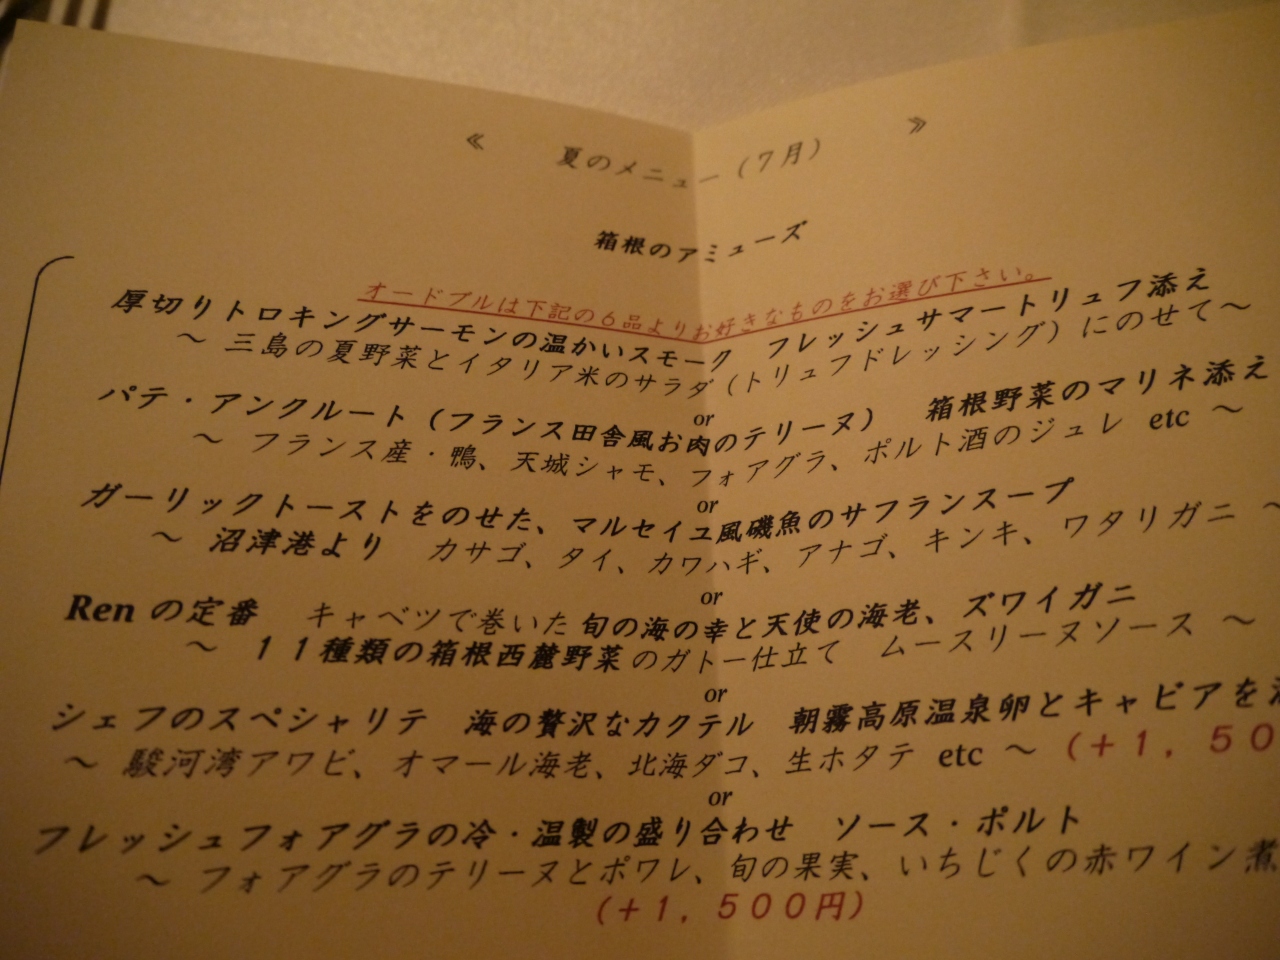 ≪　夏のメニュー（７月）　≫
箱根のアミューズ
オードブルは下記の６品よりお好きなものをお選び下さい。
厚切りトロキングサーモンの温かいスモーク　フレッシュサマートリュフ添え
～ 三島の夏野菜とイタリア米のサラダ（トリュフドレッシング）にのせて～
or
パテ・アンクルート（フランス田舎風お肉のテリーヌ）　箱根野菜のマリネ添え
～ フランス産・鴨、天城シャモ、フォアグラ、ポルト酒のジュレ etc ～
or
ガーリックトーストをのせた、マルセイユ風磯魚のサフランスープ
～ 沼津港より　カサゴ、タイ、カワハギ、アナゴ、キンキ、ワタリガニ ～
or
Ren の定番　キャベツで巻いた旬の海の幸と天使の海老、ズワイガニ
～ １１種類の箱根西麓野菜のガトー仕立て　ムースリーヌソース ～
or
シェフのスペシャリテ　海の贅沢なカクテル　朝霧高原温泉卵とキャビアを
～ 駿河湾アワビ、オマール海老、北海ダコ、生ホタテ etc ～（＋１，５０
or
フレッシュフォアグラの冷・温製の盛り合わせ　ソース・ポルト
～ フォアグラのテリーヌとポワレ、旬の果実、いちじくの赤ワイン煮
（＋１，５００円）